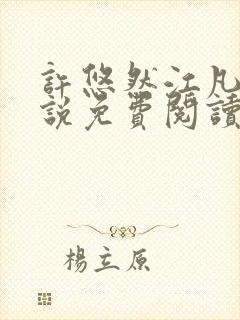 許悠然江凡
說免費閱讀
楊立原